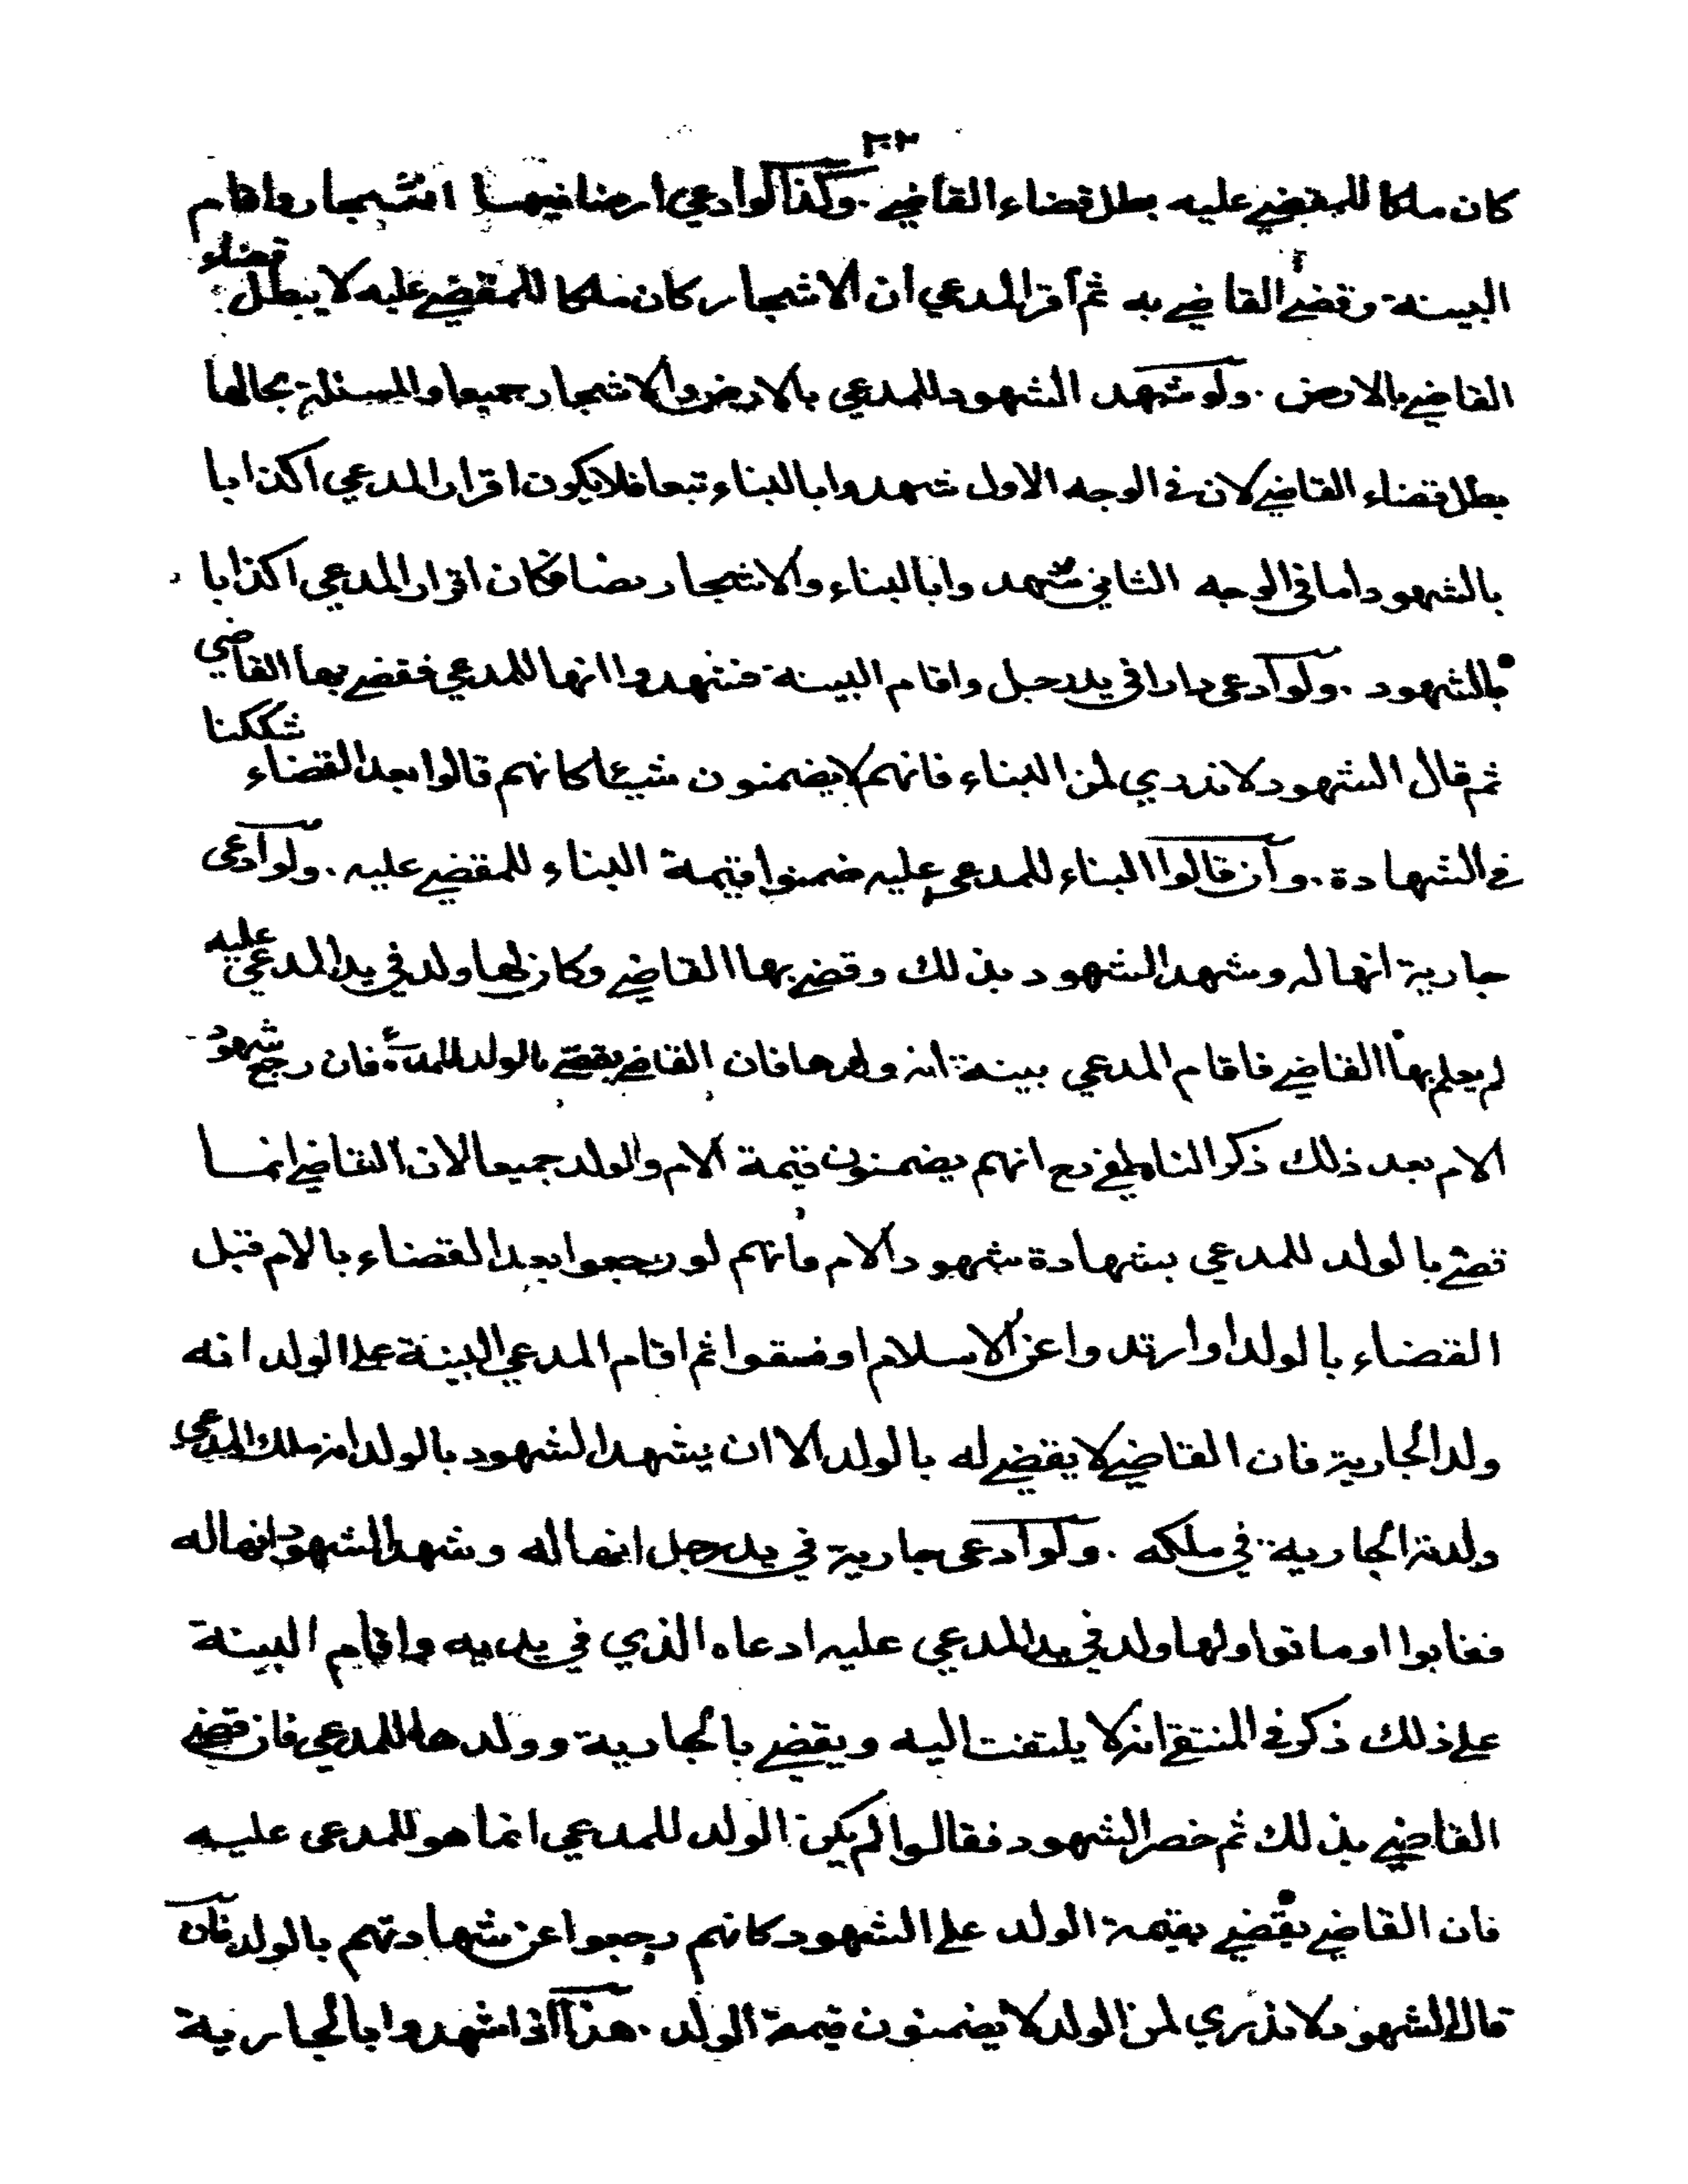 كان ملكا للمقضي عليه بطل قضاء القاضي . وكذا لو ادعي ارضا فيها اشجار واقام
البينة وقضي القاضي به ثم أقر المدعي ان الاشجار كان ملكا للمقضي عليه لا يبطل قضاء
القاضي بالارض . ولو شهد الشهود للمدعي بالارض والاشجار جميعا والمسئلة بحالها
بطل قضاء القاضي لان في الوجه الاول شهدوا بالبناء تبعا فلا يكون اقرار المدعي اكذابا
بالشهود واما في الوجه الثاني شهدوا بالبناء والاشجار نصا فكان اقرار المدعي اكذابا
بالشهود . ولو ادعى دارا في يد رجل واقام البينة فشهدوا انها للمدعي فقضي بها القاضي
ثم قال الشهود لا ندري لمن البناء فانهم لا يضمنون شيئا كانهم قالوا بعد القضاء شككنا
في الشهادة . وان قالوا البناء للمدعى عليه ضمنوا قيمة البناء للمقضي عليه . ولو ادعى
جارية انها له وشهد الشهود بذلك وقضي بها القاضي وكان لها ولد في يد المدعي عليه
لم يعلم بها القاضي فاقام المدعي بينة انه ولدها فان القاضي يقضي بالولد للمدعي فان رجع شهود
الام بعد ذلك ذكر الناطفي رح انهم يضمنون قيمة الام والولد جميعا لان القاضي انما
قضي بالولد للمدعي بشهادة شهود الام فانهم لو رجعوا بعد القضاء بالام قبل
القضاء بالولد او ارتدوا عن الاسلام او فسقوا ثم اقام المدعي البينة على الولد انه
ولد الجارية فان القاضي لا يقضي له بالولد الا ان يشهد الشهود بالولد انه ملك المدعي
ولدته الجارية في ملكه . ولو ادعى جارية في يد رجل انها له وشهد الشهود انها له
فغابوا او ماتوا ولها ولد في يد المدعي عليه ادعاه الذي في يديه واقام البينة
على ذلك ذكر في المنتقي انه لا يلتفت اليه ويقضي بالجارية وولدها للمدعي فان قضي
القاضي بذلك ثم حضر الشهود فقالوا لم يكن الولد للمدعي انما هو للمدعى عليه
فان القاضي يقضي بقيمة الولد على الشهود كانهم رجعوا عن شهادتهم بالولد فان
قال الشهود لا ندري لمن الولد لا يضمنون قيمة الولد . هذا اذا شهدوا بالجارية